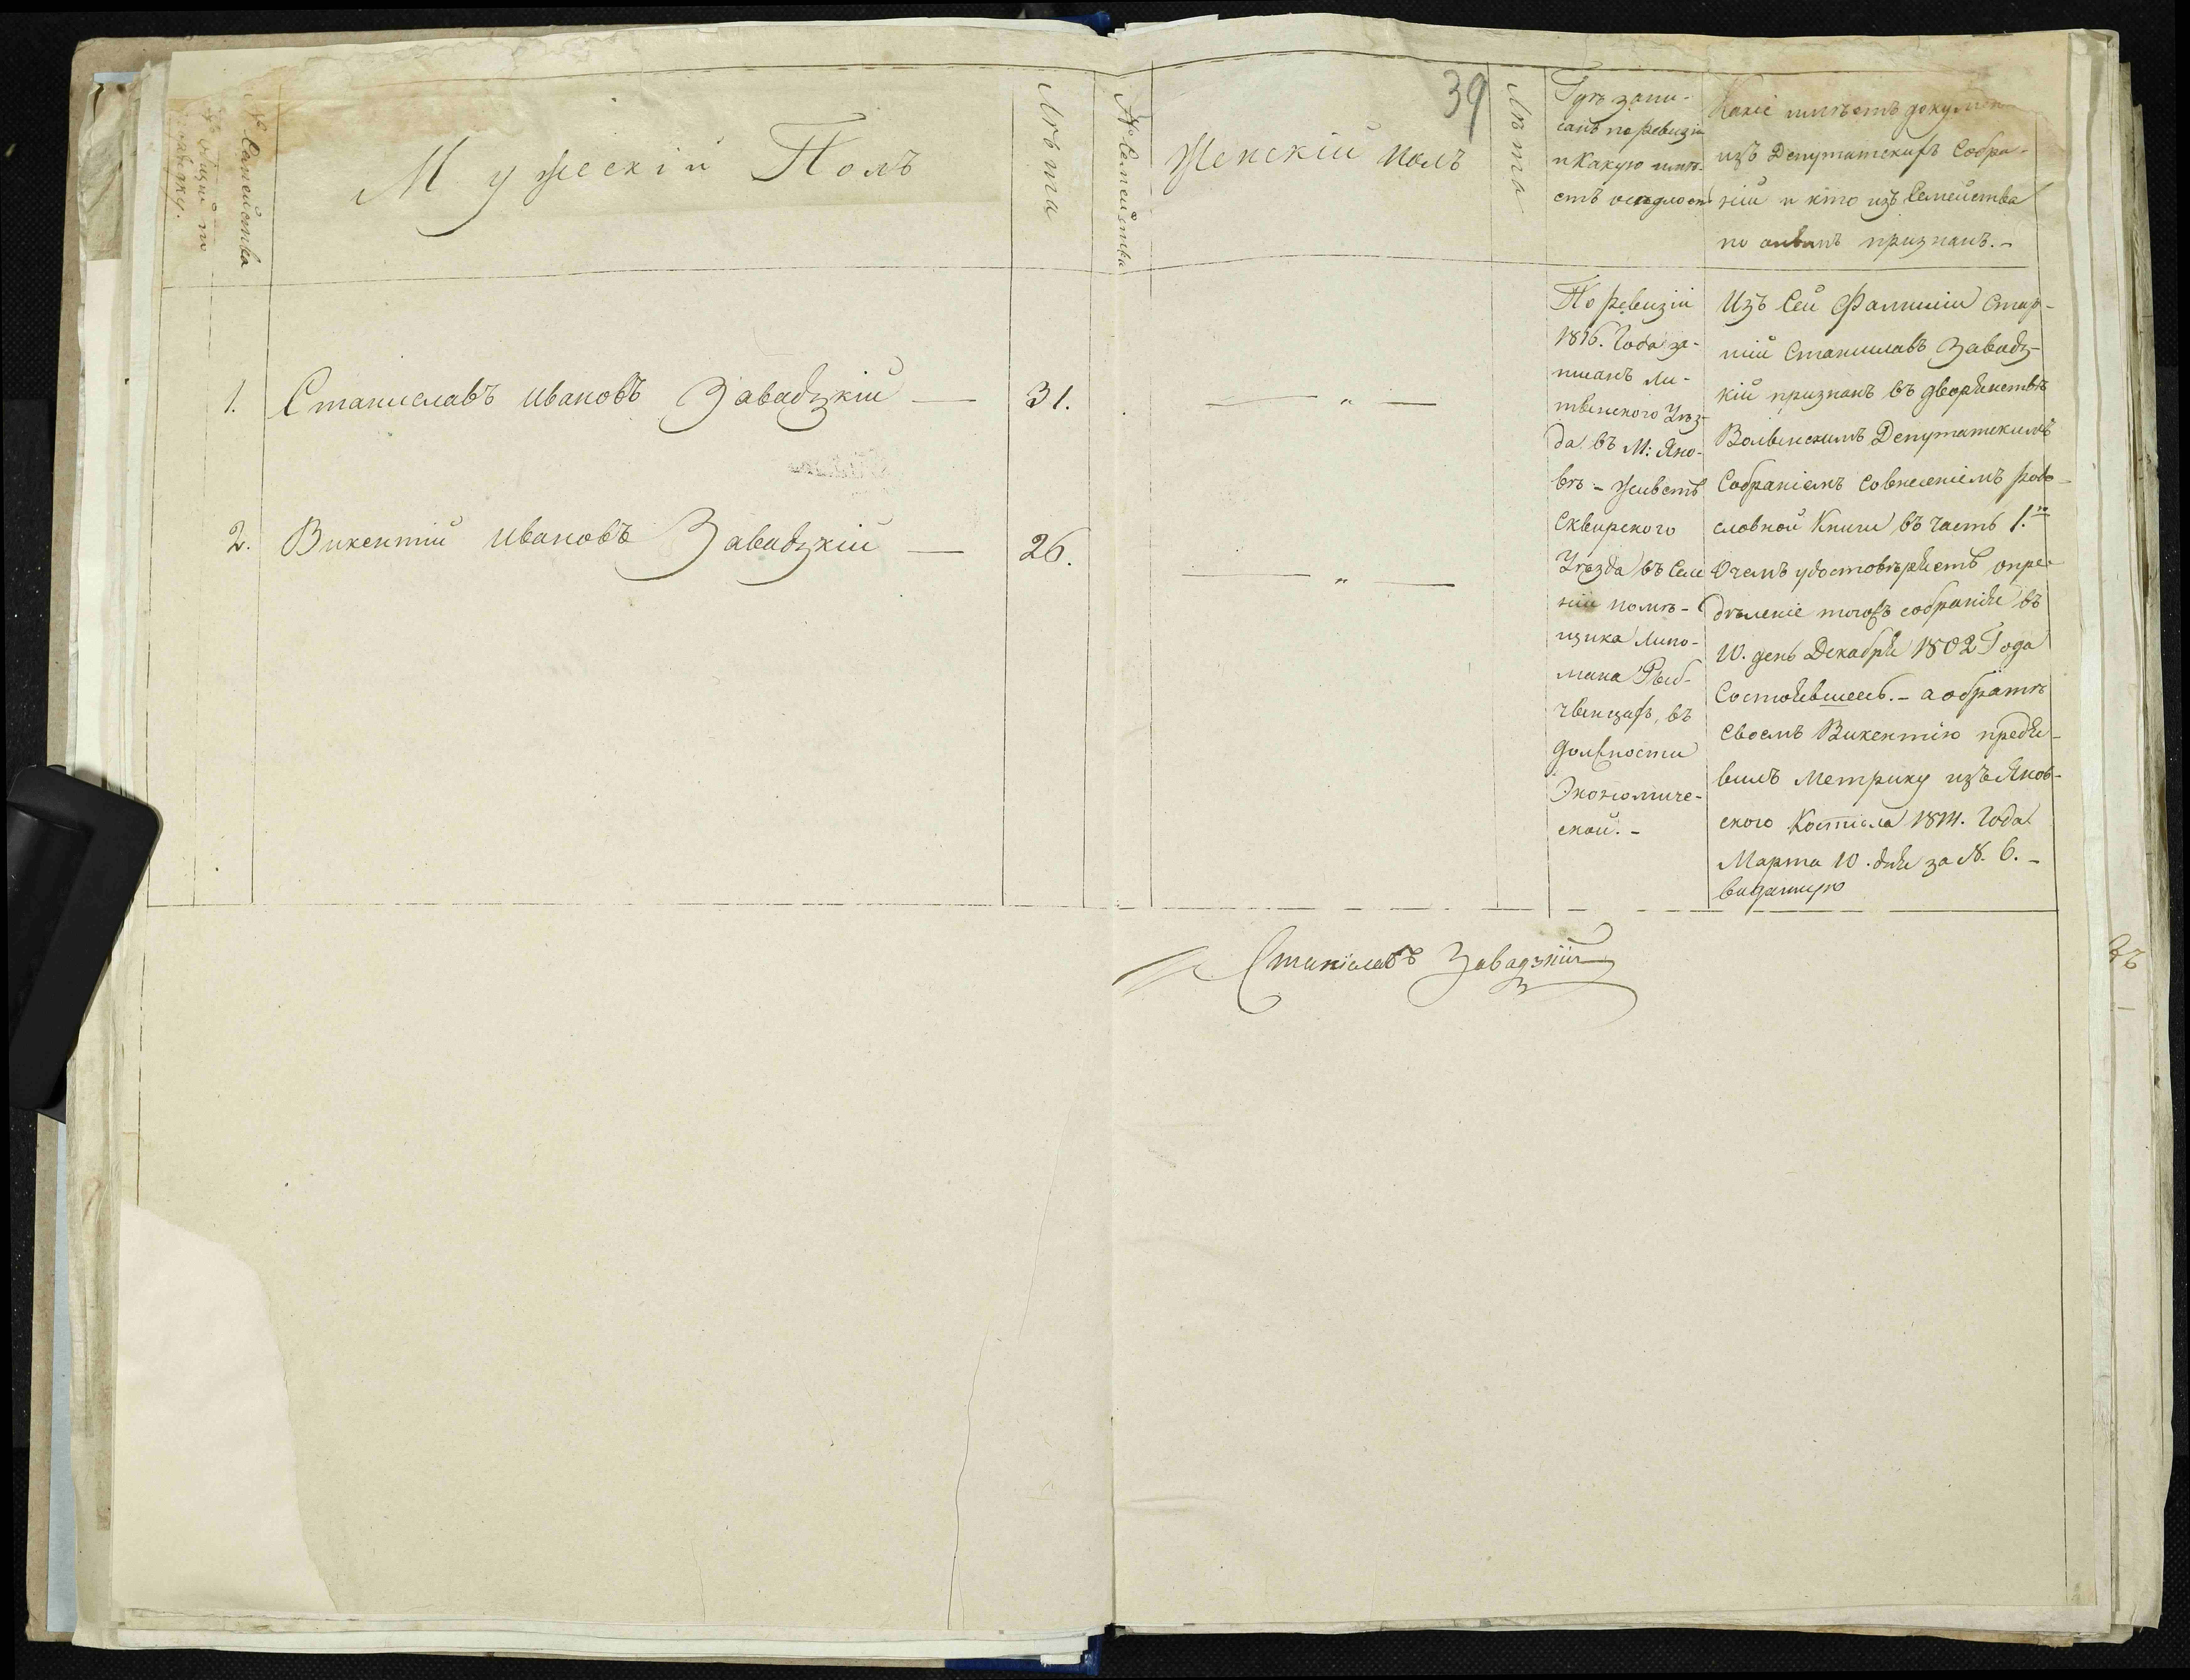 39
№ Семейства
Мужескій Полъ
Лѣта
№ Семейства
Женскій полъ
Лѣта
Гдѣ запи-
санъ по ревизіи
и какую имѣ-
етъ осѣдлость
Какіе имѣетъ докумен
изъ Депутатскихъ Собра-
ній и кто изъ Семейства
по онымъ признанъ.-
1. Станиславъ Ивановъ Завадзкій — 31.
— „ —
2. Викентій Ивановъ Завадзкій — 26.
— „ —
По ревизіи
1816. Года за-
писанъ Ли-
тынского Уѣз-
да въ М: Яно-
вѣ - живетъ
Сквирского
Уѣзда въ Селе
ніи помѣ-
щика Липо-
мана
въ
должности
Экономиче-
ской.-
Изъ Сей Фамиліи Стар-
шій Станиславъ Завадз-
кій признанъ въ дворянствѣ
Волынскимъ Депутатскимъ
Собраніемъ совнесеніемъ родо-
словной Книги въ часть 1.ю
О чемъ удостовѣряетъ опре-
дѣленіе тогожъ собранія въ
10. день Декабря 1802 Года
Состоявшеесь.- а о братѣ
своемъ Викентію предя-
вилъ Метрику изъ Янов-
ского Костіола 1814. Года
Марта 10. дня за №. 6.-
выданную
Станіславъ Завадзкій